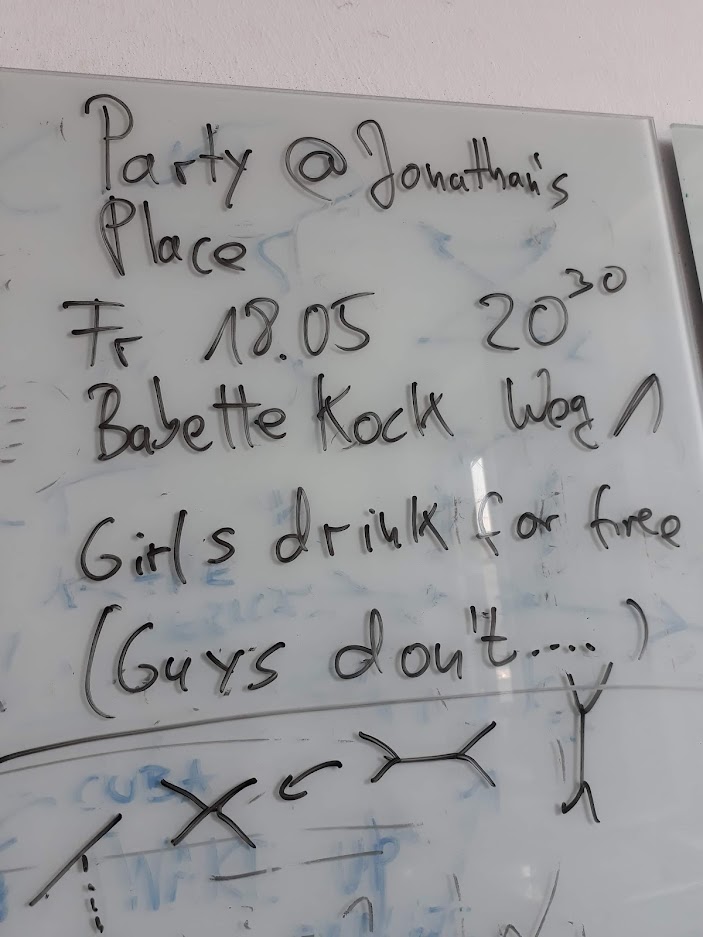 Party @ Jonathan's
Place
Fr 18.05 20³⁰
Babette Kock Weg 1
Girls drink for free
(Guys don't....)
CUBA
WAKE UP